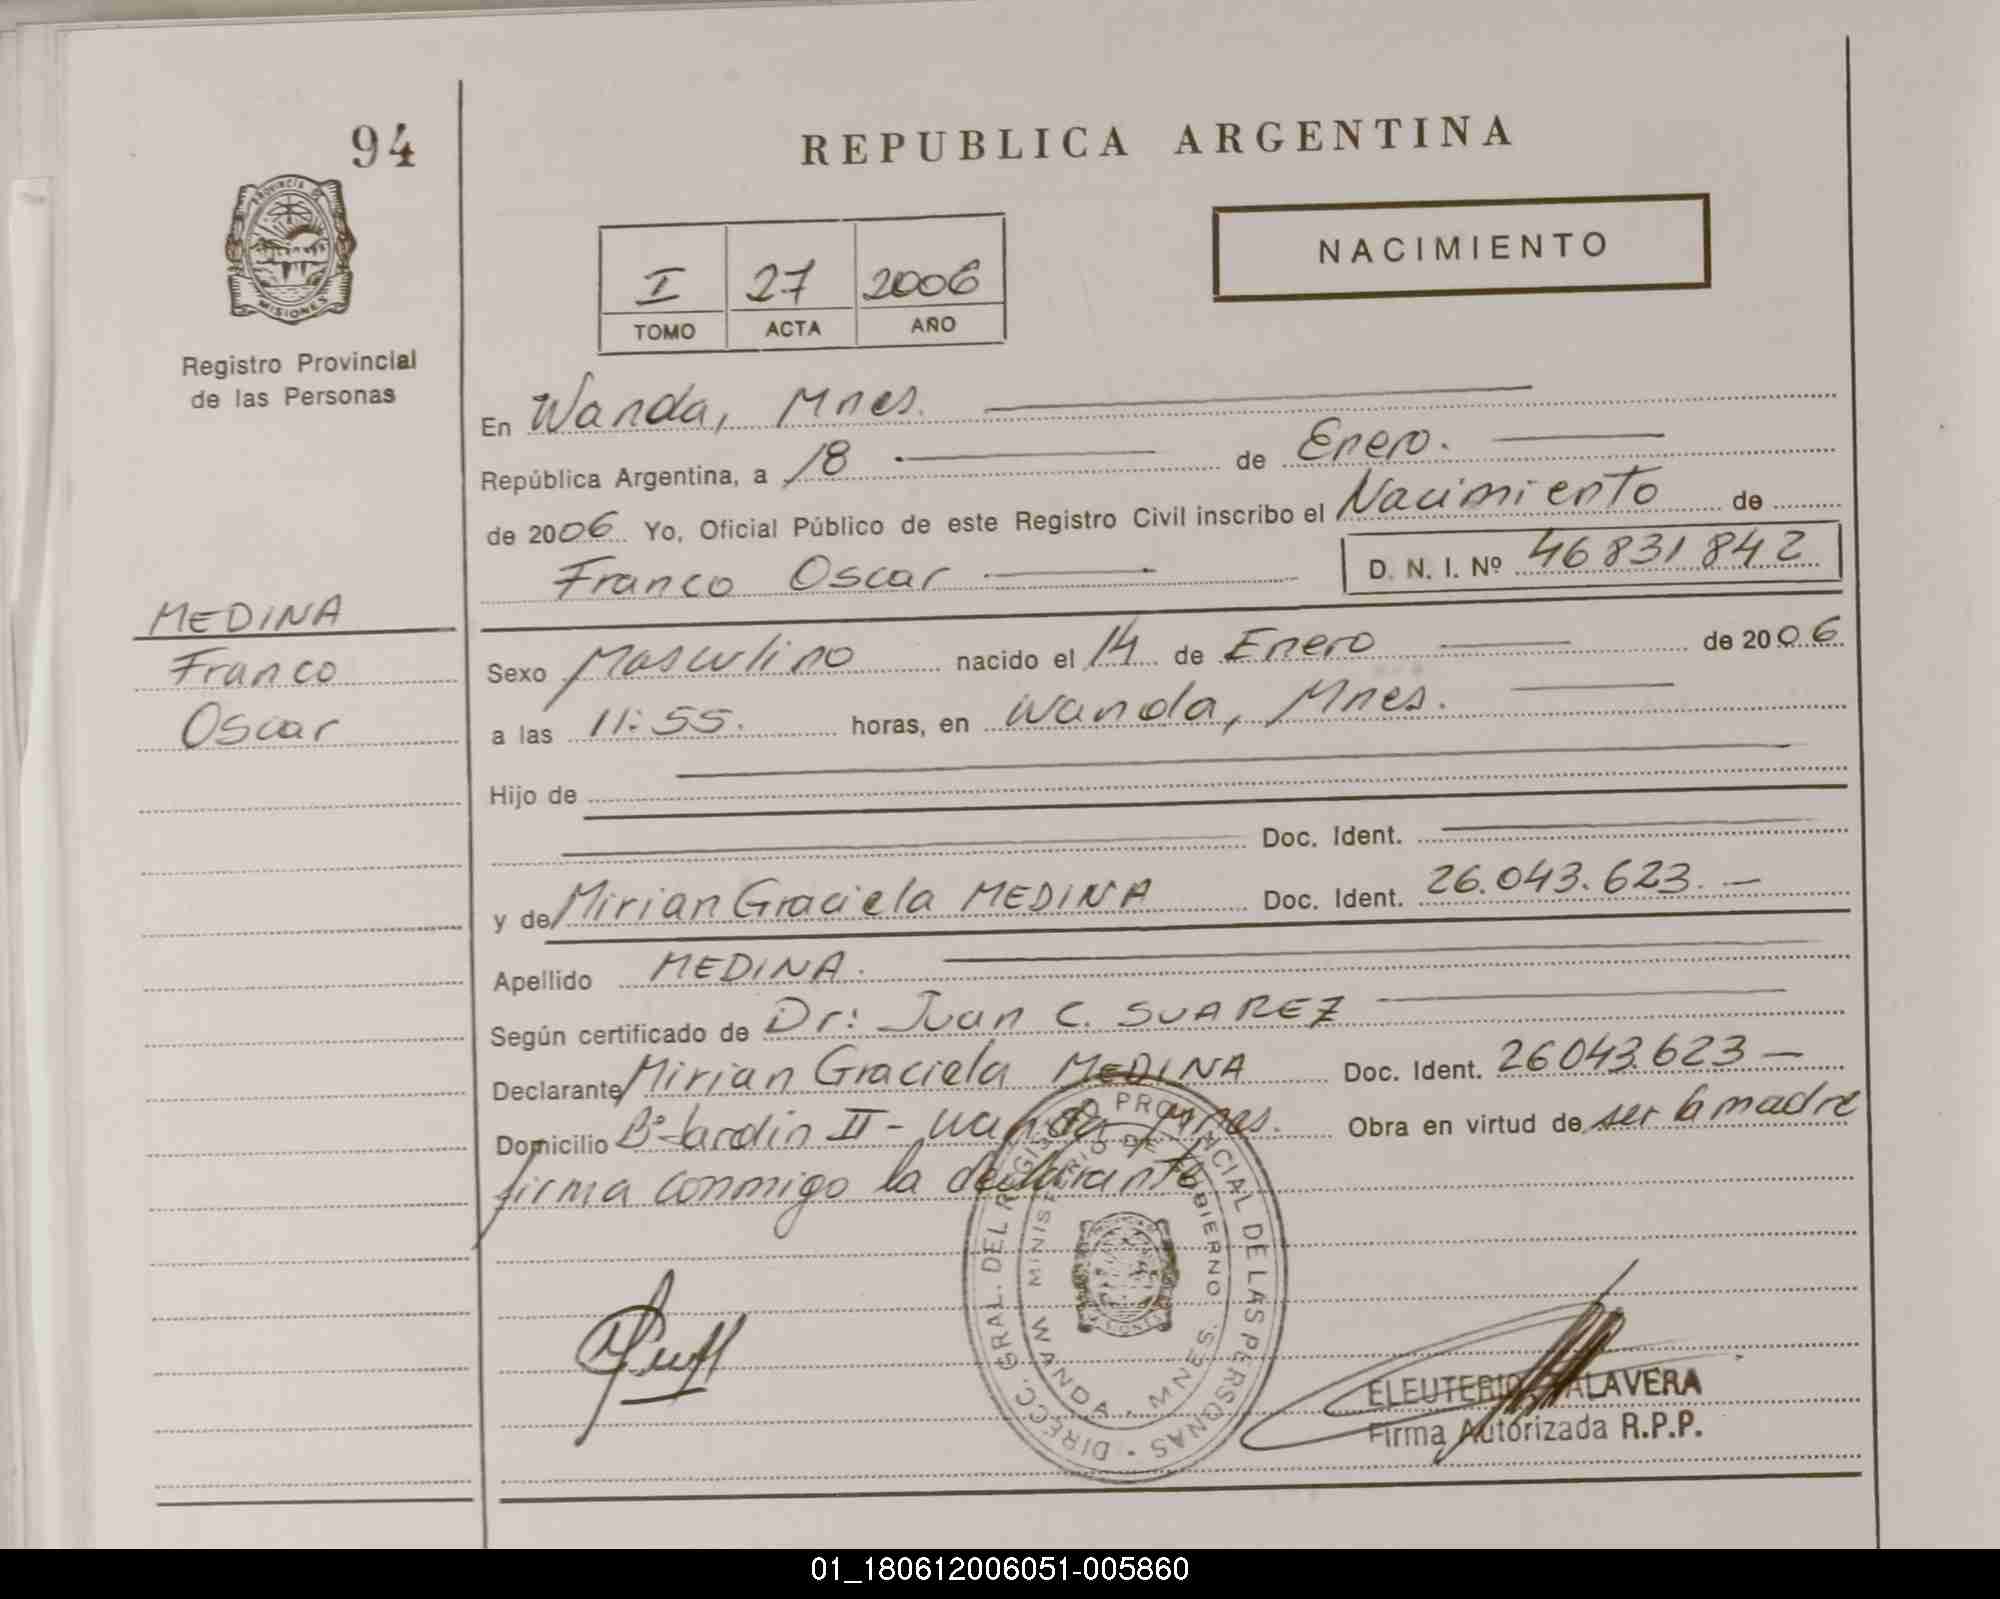 94
REPUBLICA ARGENTINA
PROVINCIA DE MISIONES
NACIMIENTO
I 27 2006
TOMO ACTA AÑO
Registro Provincial
de las Personas
En Wanda, Mnes.
República Argentina, a 18 de Enero.
de 2006 Yo, Oficial Público de este Registro Civil inscribo el Nacimiento de
Franco Oscar D. N. I. Nº 46831842
MEDINA
Franco
Oscar
Sexo Masculino nacido el 14 de Enero de 2006
a las 11:55. horas, en Wanda, Mnes.
Hijo de
Doc. Ident.
y de Mirian Graciela MEDINA Doc. Ident. 26.043.623.-
Apellido MEDINA.
Según certificado de Dr: Juan C. SUAREZ
Declarante Mirian Graciela MEDINA Doc. Ident. 26043.623-
Domicilio Bº Jardin II - Wanda, Mnes. Obra en virtud de ser la madre
firma conmigo la declarante
DIRECC. GRAL. DEL REGISTRO PROVINCIAL DE LAS PERSONAS
MINISTERIO DE GOBIERNO
WANDA - MNES.
ELEUTERIO TALAVERA
Firma Autorizada R.P.P.
01_180612006051-005860